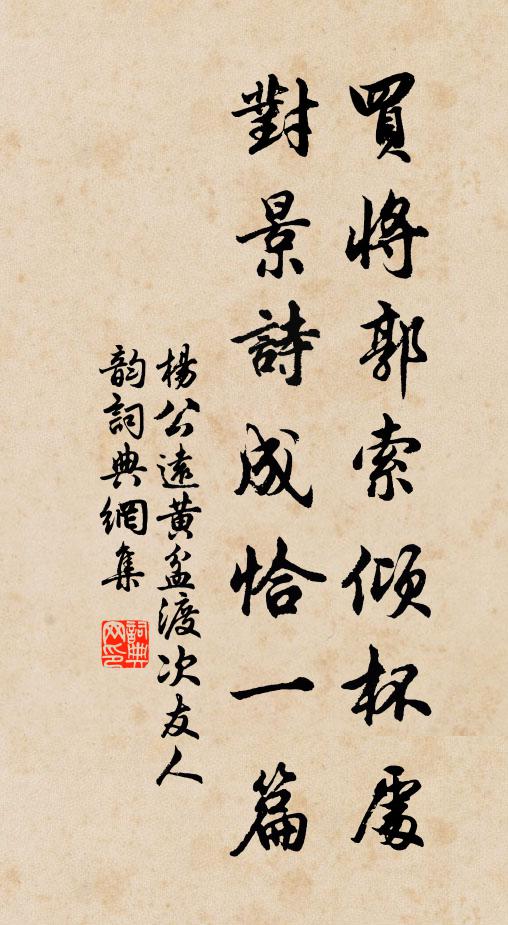 買將郭索傾杯處
對景詩成恰一篇
楊公遠黄盆渡次友人
韵詞典網集
詞典
网印